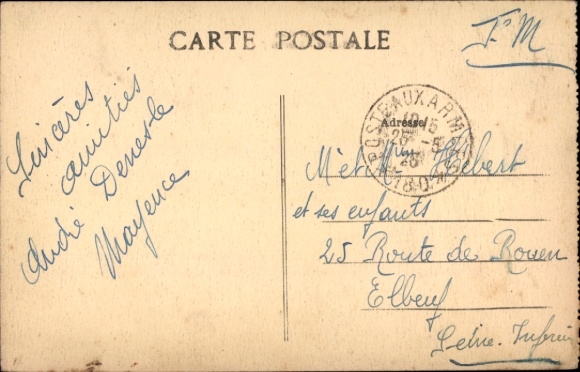 CARTE POSTALE
F.M
Sincères
amitiés
André Denesle
Mayence
Adresse
POSTE AUX ARMÉES
M et Mme Hébert
et ses enfants
25 Route de Rouen
Elbeuf
Seine-Infre